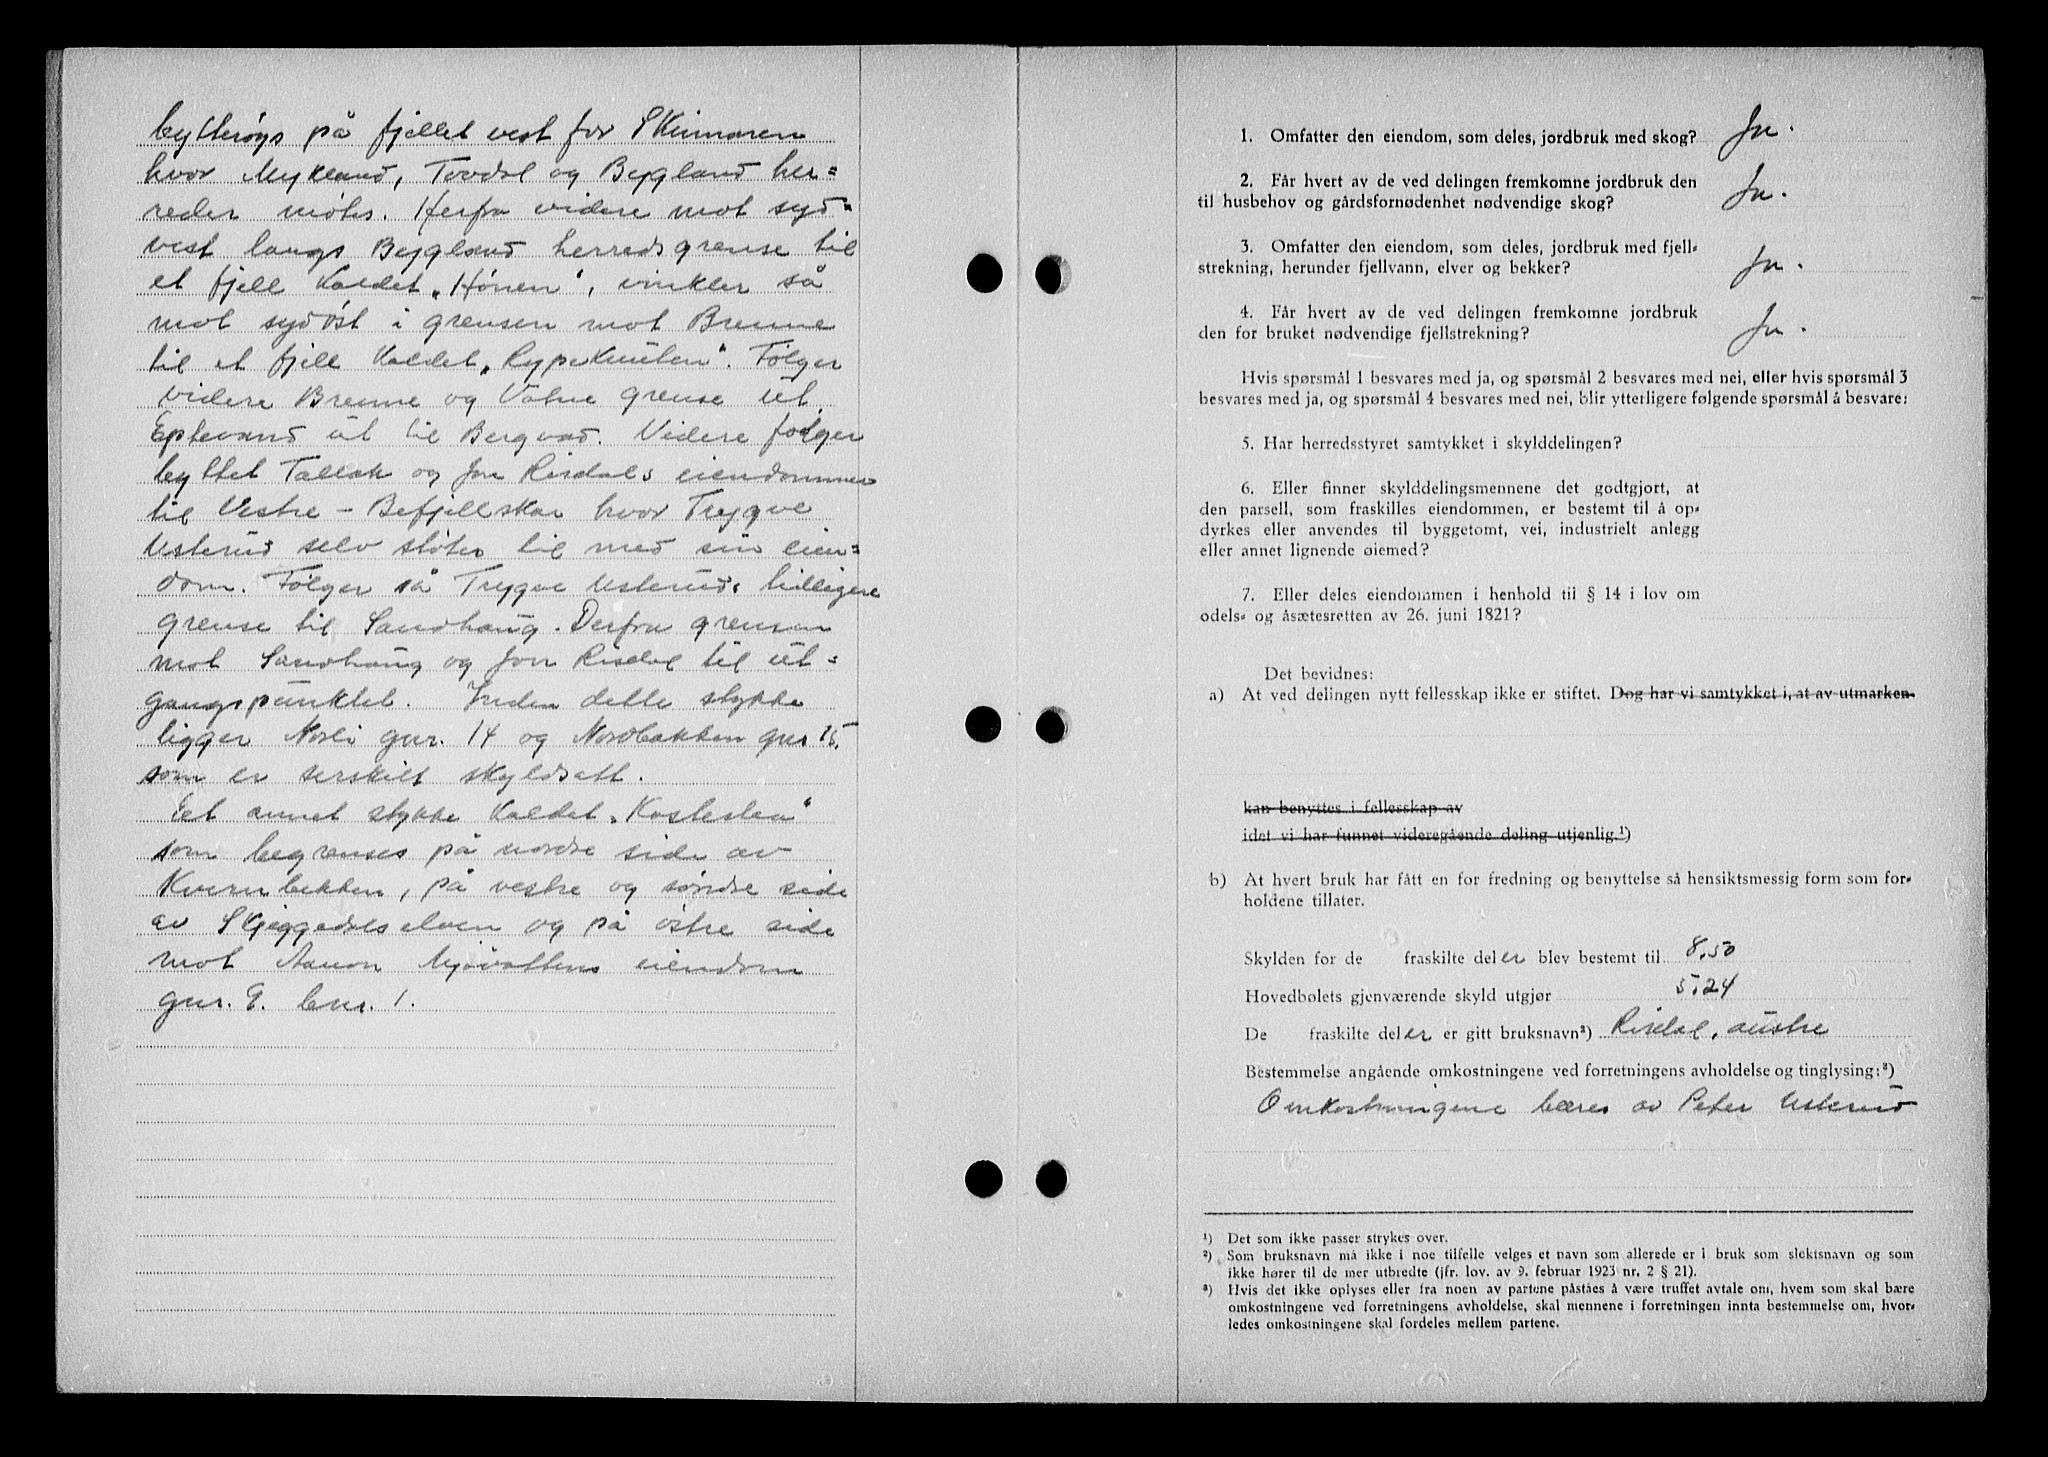 bytterøys på fjellet vest for Skinnaren
hvor Mykland, Tovdal og Bygland her=
reder møtes. Herfra videre mot syd=
vest langs Bygland herredsgrense til
et fjell kaldet „Hønen“, vinkler så
mot sydøst i grensen mot Brenne
til et fjell kaldet „Rypeknuten“. Følger
videre Brenne og Vatne grense ut
Eptevand ut til Bergvad. Videre følger
byttet Tallak og Jon Risdals eiendommer
til Vestre - Befjellskar hvor Trygve
Usterud selv støter til med sin eien=
dom. Følger så Trygve Usteruds tidligere
grense til Sandhaug. Derfra grensen
mot Sandhaug og Jon Risdal til ut=
gangspunktet. Inden dette stykke
ligger Norli gnr. 14 og Nordbakken gnr 15.
som er serskilt skyldsatt.
Eet annet stykke kaldet „Kostesten“
som begrenses på nordre side av
Kvernbekken, på vestre og søndre side
av Skjeggedalselven og på østre side
mot Aanon Mjåvattens eiendom
gnr. 9. bnr. 1.
1. Omfatter den eiendom, som deles, jordbruk med skog? Ja.
2. Får hvert av de ved delingen fremkomne jordbruk den
til husbehov og gårdsfornødenhet nødvendige skog? Ja.
3. Omfatter den eiendom, som deles, jordbruk med fjell-
strekning, herunder fjellvann, elver og bekker? Ja.
4. Får hvert av de ved delingen fremkomne jordbruk
den for bruket nødvendige fjellstrekning? Ja.
Hvis spørsmål 1 besvares med ja, og spørsmål 2 besvares med nei, eller hvis spørsmål 3
besvares med ja, og spørsmål 4 besvares med nei, blir ytterligere følgende spørsmål å besvare:
5. Har herredsstyret samtykket i skylddelingen?
6. Eller finner skylddelingsmennene det godtgjort, at
den parsell, som fraskilles eiendommen, er bestemt til å op-
dyrkes eller anvendes til byggetomt, vei, industrielt anlegg
eller annet lignende øiemed?
7. Eller deles eiendommen i henhold til § 14 i lov om
odels- og åsætesretten av 26. juni 1821?
Det bevidnes:
a) At ved delingen nytt fellesskap ikke er stiftet. Dog har vi samtykket i, at av utmarken-
kan benyttes i fellesskap av
idet vi har funnet videregående deling utjenlig.¹)
b) At hvert bruk har fått en for fredning og benyttelse så hensiktsmessig form som for-
holdene tillater.
Skylden for de fraskilte deler blev bestemt til 8,50
Hovedbølets gjenværende skyld utgjør 5.24
De fraskilte deler er gitt bruksnavn²) Risdal, austre
Bestemmelse angående omkostningene ved forretningens avholdelse og tinglysing:³)
Omkostningene bæres av Peter Usterud
¹) Det som ikke passer strykes over.
²) Som bruksnavn må ikke i noe tilfelle velges et navn som allerede er i bruk som slektsnavn og som
ikke hører til de mer utbredte (jfr. lov. av 9. februar 1923 nr. 2 § 21).
³) Hvis det ikke oplyses eller fra noen av partene påståes å være truffet avtale om, hvem som skal bære
omkostningene ved forretningens avholdelse, skal mennene i forretningen innta bestemmelse om, hvor-
ledes omkostningene skal fordeles mellem partene.